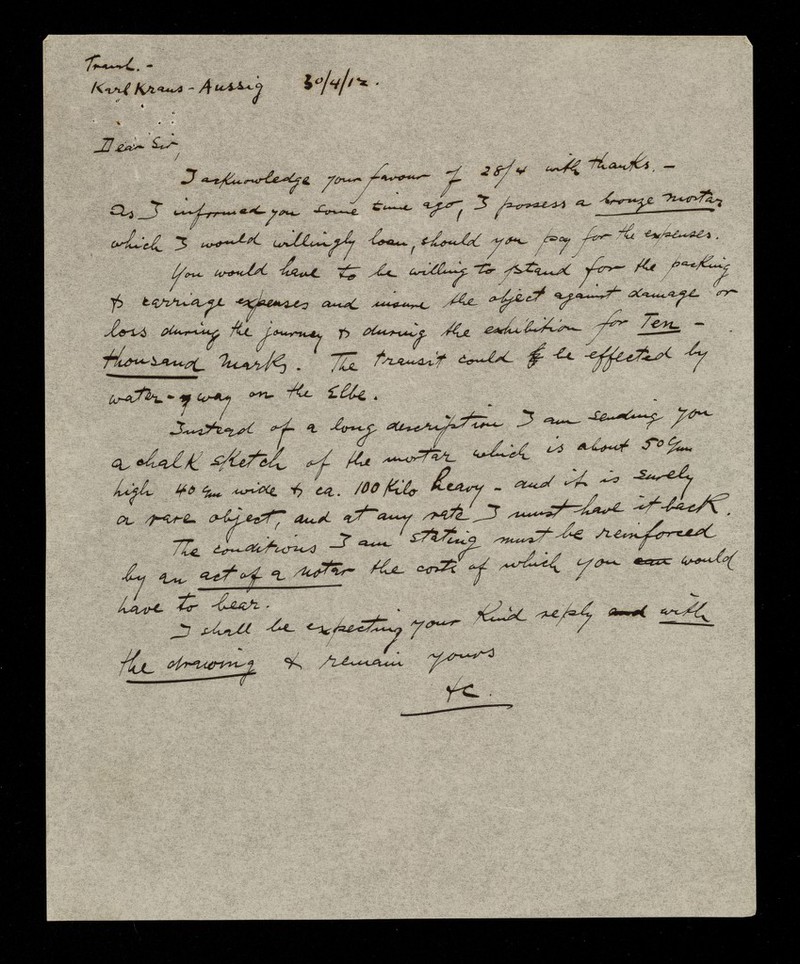 Transl. -
Karl Kraus - Aussig 30/4/12.
Dear Sir,
I acknowledge your favour of 28/4 with thanks. -
As I informed you some time ago, I possess a bronze mortar
which I would willingly loan, should you pay for the expenses.
You would have to be willing to stand for the packing
& carriage expenses and insure the object against damage or
loss during the journey & during the exhibition for Ten -
thousand Marks. The transit could be effected by
water-way on the Elbe.
Instead of a long description I am sending you
a chalk sketch of the mortar which is about 50 cm
high 40 cm wide & ca. 100 Kilo heavy - and it is surely
a rare object, and at any rate I must have it back.
The conditions I am stating must be reinforced
by an act of a notar the costs of which you can would
have to bear.
I shall be expecting your Kind reply and with
the drawing & remain yours
&c.